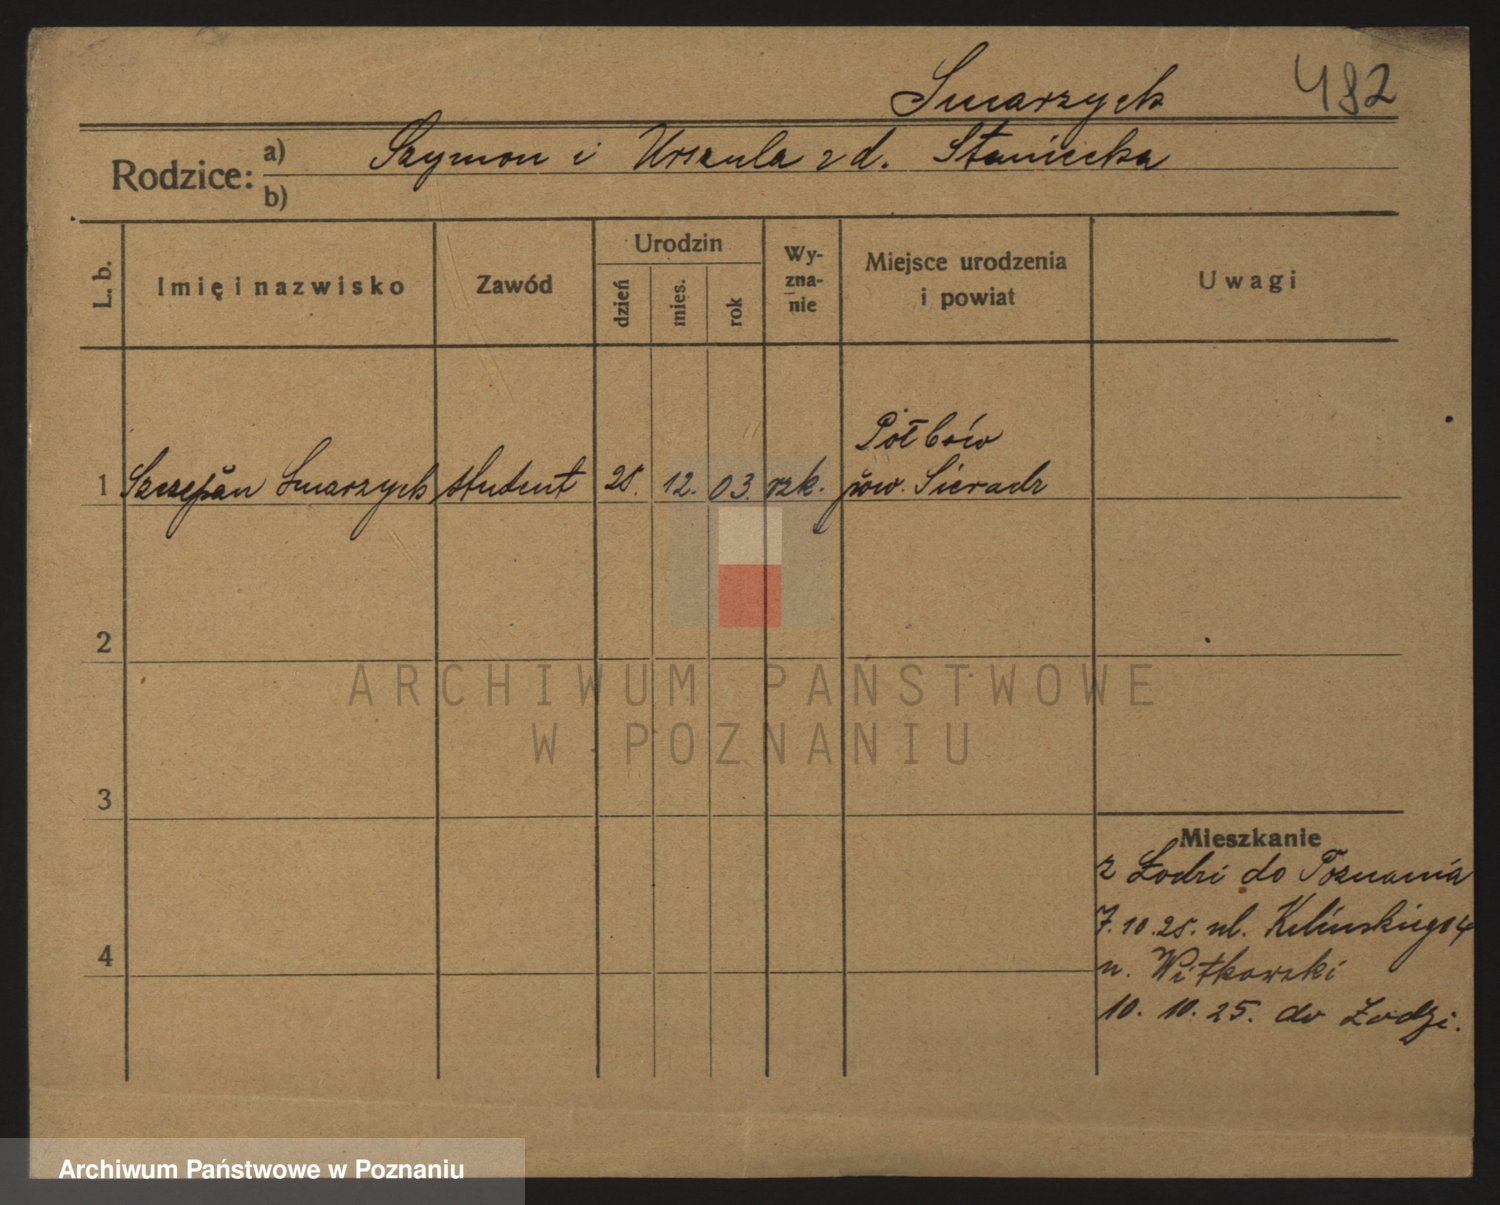 Smarzych 482
Rodzice: a) Szymon i Urszula z d. Staniecka
b)
L. b. Imię i nazwisko Zawód Urodzin dzień mies. rok Wy-zna-nie Miejsce urodzenia i powiat Uwagi
Połbów
1 Szczepan Smarzych student 25. 12. 03. rzk. pow. Sieradz
2
ARCHIWUM PAŃSTWOWE
W POZNANIU
3
Mieszkanie
z Łodzi do Poznania
7.10.25. ul. Kilinskiego 4
u. Witkowski
4
10. 10. 25. do Łodzi.
Archiwum Państwowe w Poznaniu